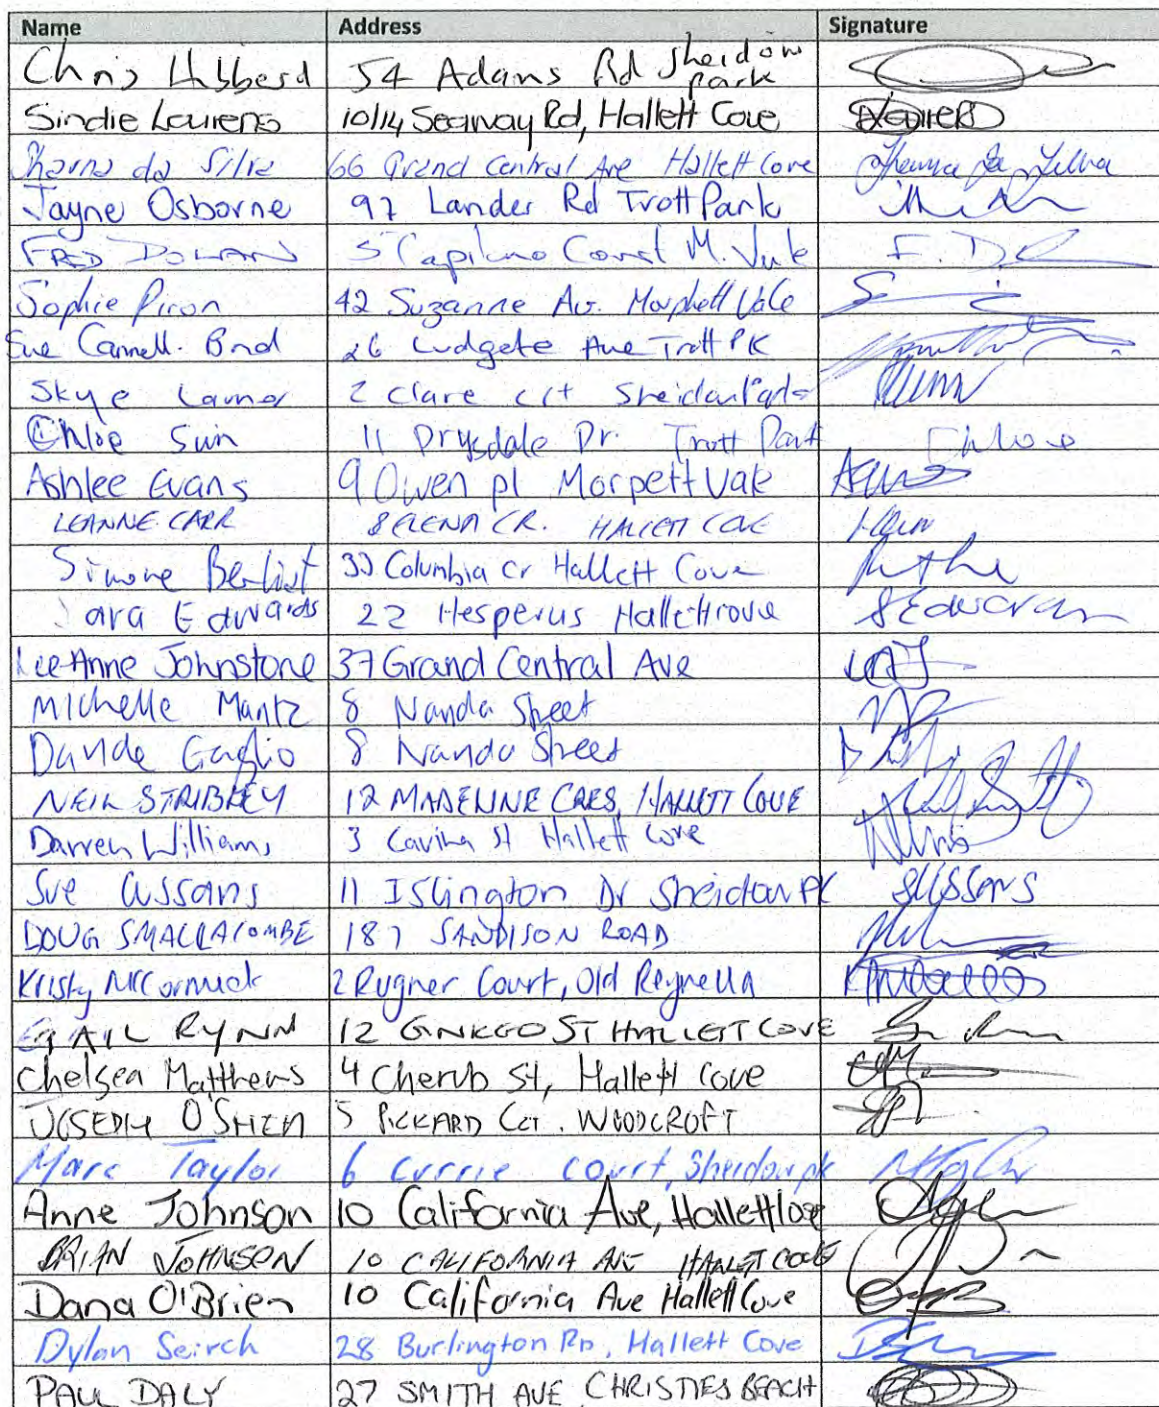 Name Address Signature
Chris Hibberd 54 Adams Rd Sheidow Park
Sindie Laurens 10/14 Seaway Rd, Hallett Cove
da Silva 66 Grand Central Ave Hallett Cove
Jayne Osborne 97 Lander Rd Trott Park
FRED DOLAN 5 Court M. Vale F. D
Sophie Piron 42 Suzanne Av. Morphett Vale
Sue 26 Ludgate Ave Trott PK
Skye 2 Clare crt Sheidow Park
Chloe Sun 11 Drysdale Dr. Trott Park Chloe
Ashlee Evans 9 Owen pl Morpett Vale
LEANNE CARR 8 ELENA CR. HALLETT COVE
Simone 33 Columbia cr Hallett Cove
Edwards 22 Hesperus Hallett cove
Lee-Anne Johnstone 37 Grand Central Ave LAJ
Michelle Mantz 8 Nanda Street
Davide Gaglio 8 Nanda Street
NEIL STRIBLEY 12 MADELINE CRES, HALLETT COVE
Darren Williams 3 St Hallett Cove
Sue Cussans 11 Islington Dr Sheidow PK
DOUG SMALLACOMBE 187 SANDISON ROAD
Kristy McCormick 2 Rugner Court, Old Reynella
GAIL RYNN 12 GINKGO ST HALLETT COVE
Chelsea Matthews 4 Cherub St, Hallett Cove
JOSEPH O'SHEA 5 PICKARD CCT. WOODCROFT
Marc Taylor 6 Currie Court, Sheidow pk
Anne Johnson 10 California Ave, Hallett Cove
BRIAN JOHNSON 10 CALIFORNIA AVE HALLETT COVE
Dana O'Brien 10 California Ave Hallett Cove
Dylan Seirch 28 Burlington RD, Hallett Cove
PAUL DALY 27 SMITH AVE CHRISTIES BEACH